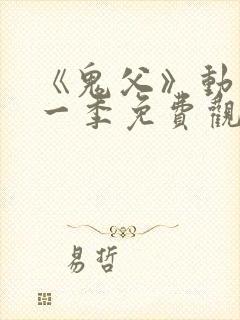 《鬼父》動
一季免費觀
易哲